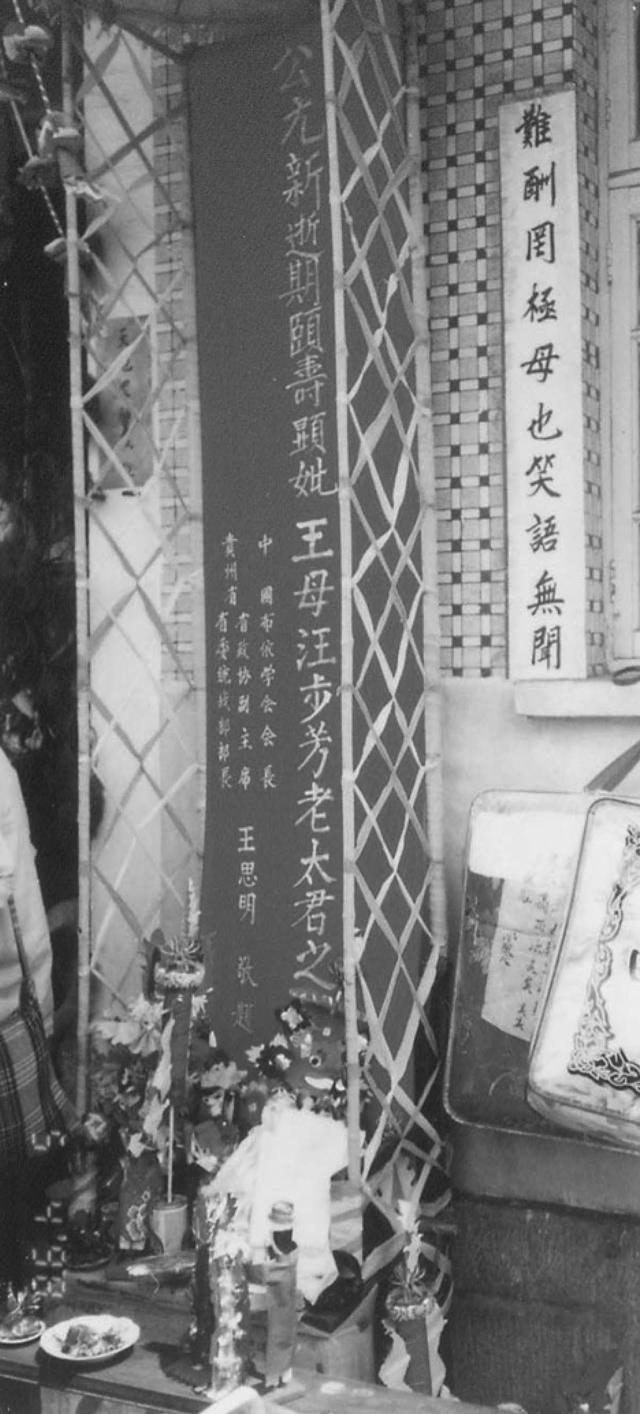 難酬罔極母也笑語無聞
公元新逝期頤壽顯妣王母汪步芳老太君之
中國布依学会会長
省政协副主席
貴州省省委統战部部長
王思明 敬題